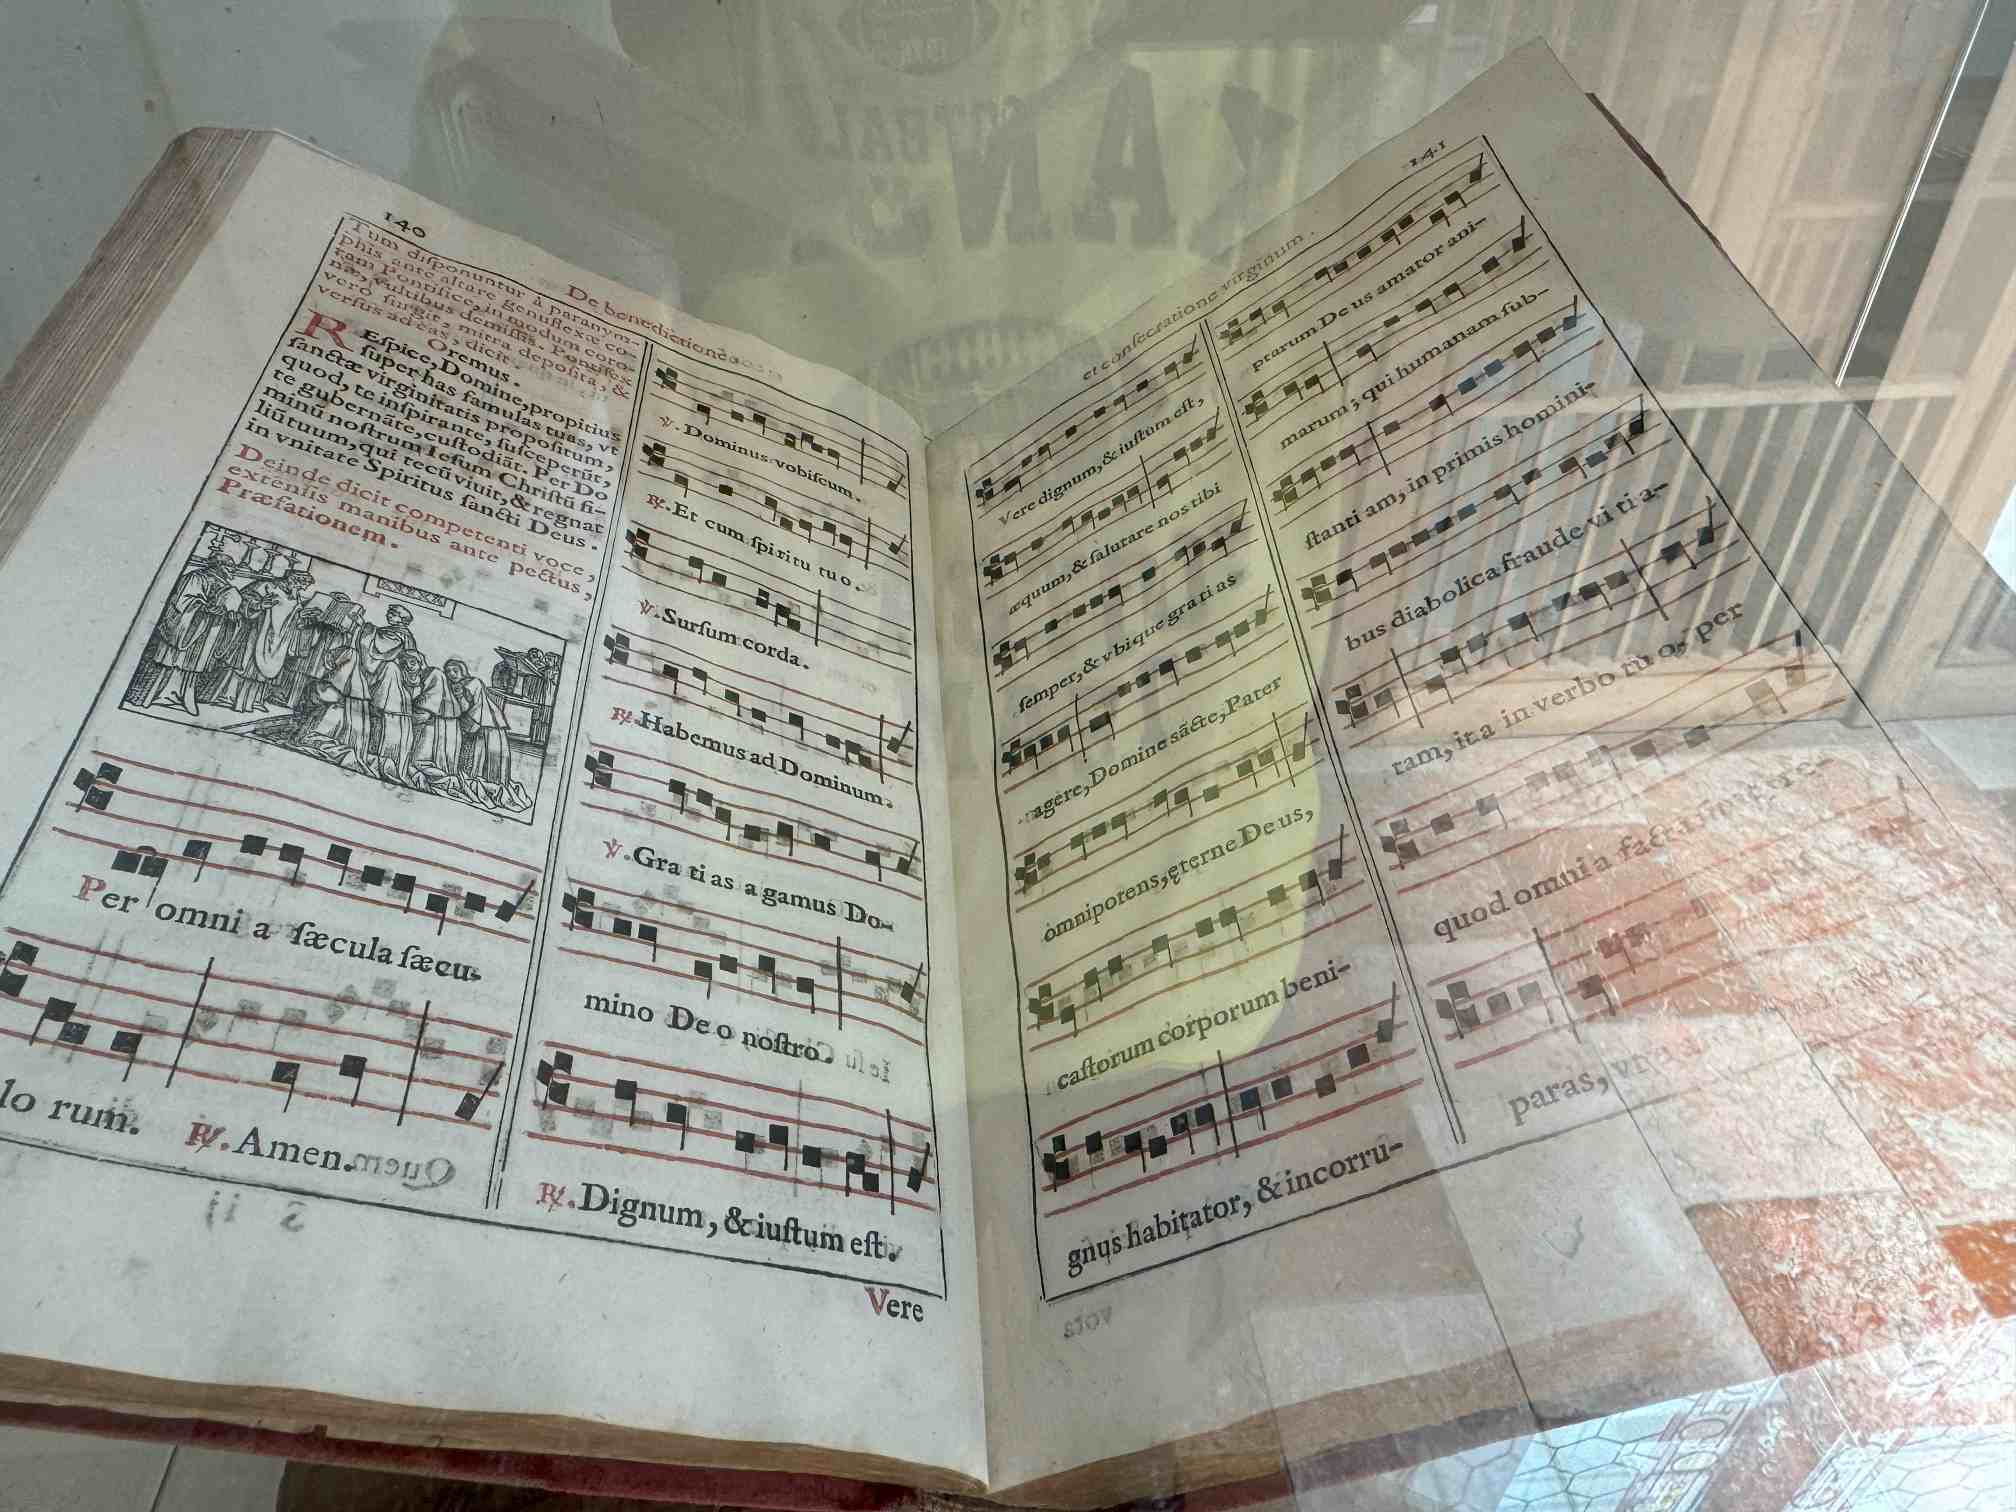 140
De benedictione
Tum diſponuntur à paranym-
phis ante altare genuflexæ co-
ram Pontifice, in modum coro-
næ, vultibus demiſſis. Pontifex
verò ſurgit, mitra depoſita, &
verſus ad eas, dicit.
Oremus.
REſpice, Domine, propitius
ſuper has famulas tuas, vt
ſanctæ virginitatis propoſitum,
quod, te inſpirante, ſuſceperūt,
te gubernāte, cuſtodiāt. Per Do
minū noſtrum Ieſum Chriſtū fi-
liū tuum, qui tecū viuit, & regnat
in vnitate Spiritus ſancti Deus.
Deinde dicit competenti voce,
extenſis manibus ante pectus,
Præfationem.
Per omni a ſæcula ſæcu-
lo rum. ℟. Amen.
℣. Dominus vobiſcum.
℟. Et cum ſpiri tu tu o.
℣. Surſum corda.
℟. Habemus ad Dominum.
℣. Gra ti as a gamus Do-
mino De o noſtro.
℟. Dignum, & iuſtum eſt.
Vere
141
et conſecratione virginum.
Vere dignum, & iuſtum eſt,
æquum, & ſalutare nos tibi
ſemper, & vbique gra ti as
agere, Domine sācte, Pater
omnipotens, ęterne De us,
caſtorum corporum beni-
gnus habitator, & incorru-
ptarum De us amator ani-
marum; qui humanam ſub-
ſtanti am, in primis homini-
bus diabolica fraude vi ti a-
tam, it a in verbo tu o, per
quod omni a facta ſunt, re-
paras,